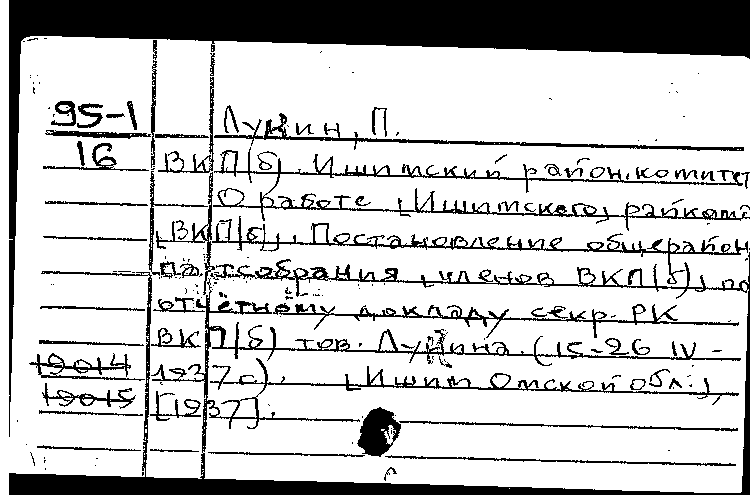 95-1
16
Лунин, П.
ВКП(б). Ишимский район. комитет
О работе [Ишимского] райкома
[ВКП(б)]. Постановление общерайон
партсобрания [членов ВКП(б)] по
отчётному докладу секр. РК
ВКП(б) тов. Лунина. (15-26 IV -
1937 г.). [Ишим Омской обл.],
[1937].
19014
19015